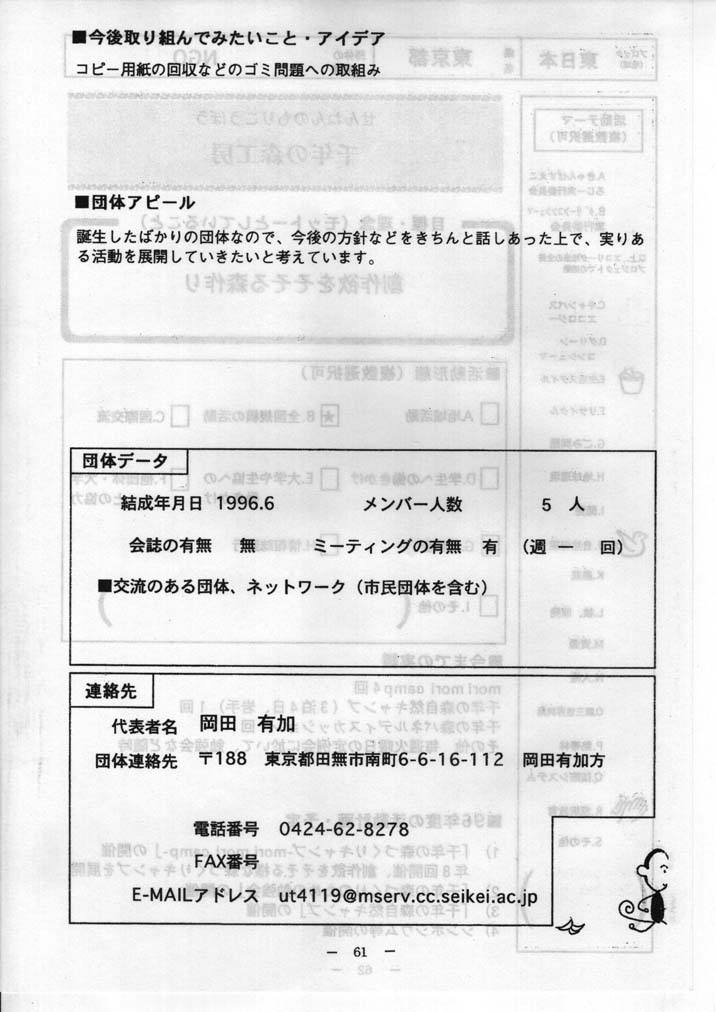 ■今後取り組んでみたいこと・アイデア
コピー用紙の回収などのゴミ問題への取組み
■団体アピール
誕生したばかりの団体なので、今後の方針などをきちんと話しあった上で、実りあ
る活動を展開していきたいと考えています。
団体データ
結成年月日 1996.6 メンバー人数 5 人
会誌の有無 無 ミーティングの有無 有 (週一 回)
■交流のある団体、ネットワーク(市民団体を含む)
連絡先
代表者名 岡田 有加
団体連絡先 〒188 東京都田無市南町6-6-16-112 岡田有加方
電話番号 0424-62-8278
FAX番号
E-MAILアドレス ut4119@mserv.cc.seikei.ac.jp
- 61 -